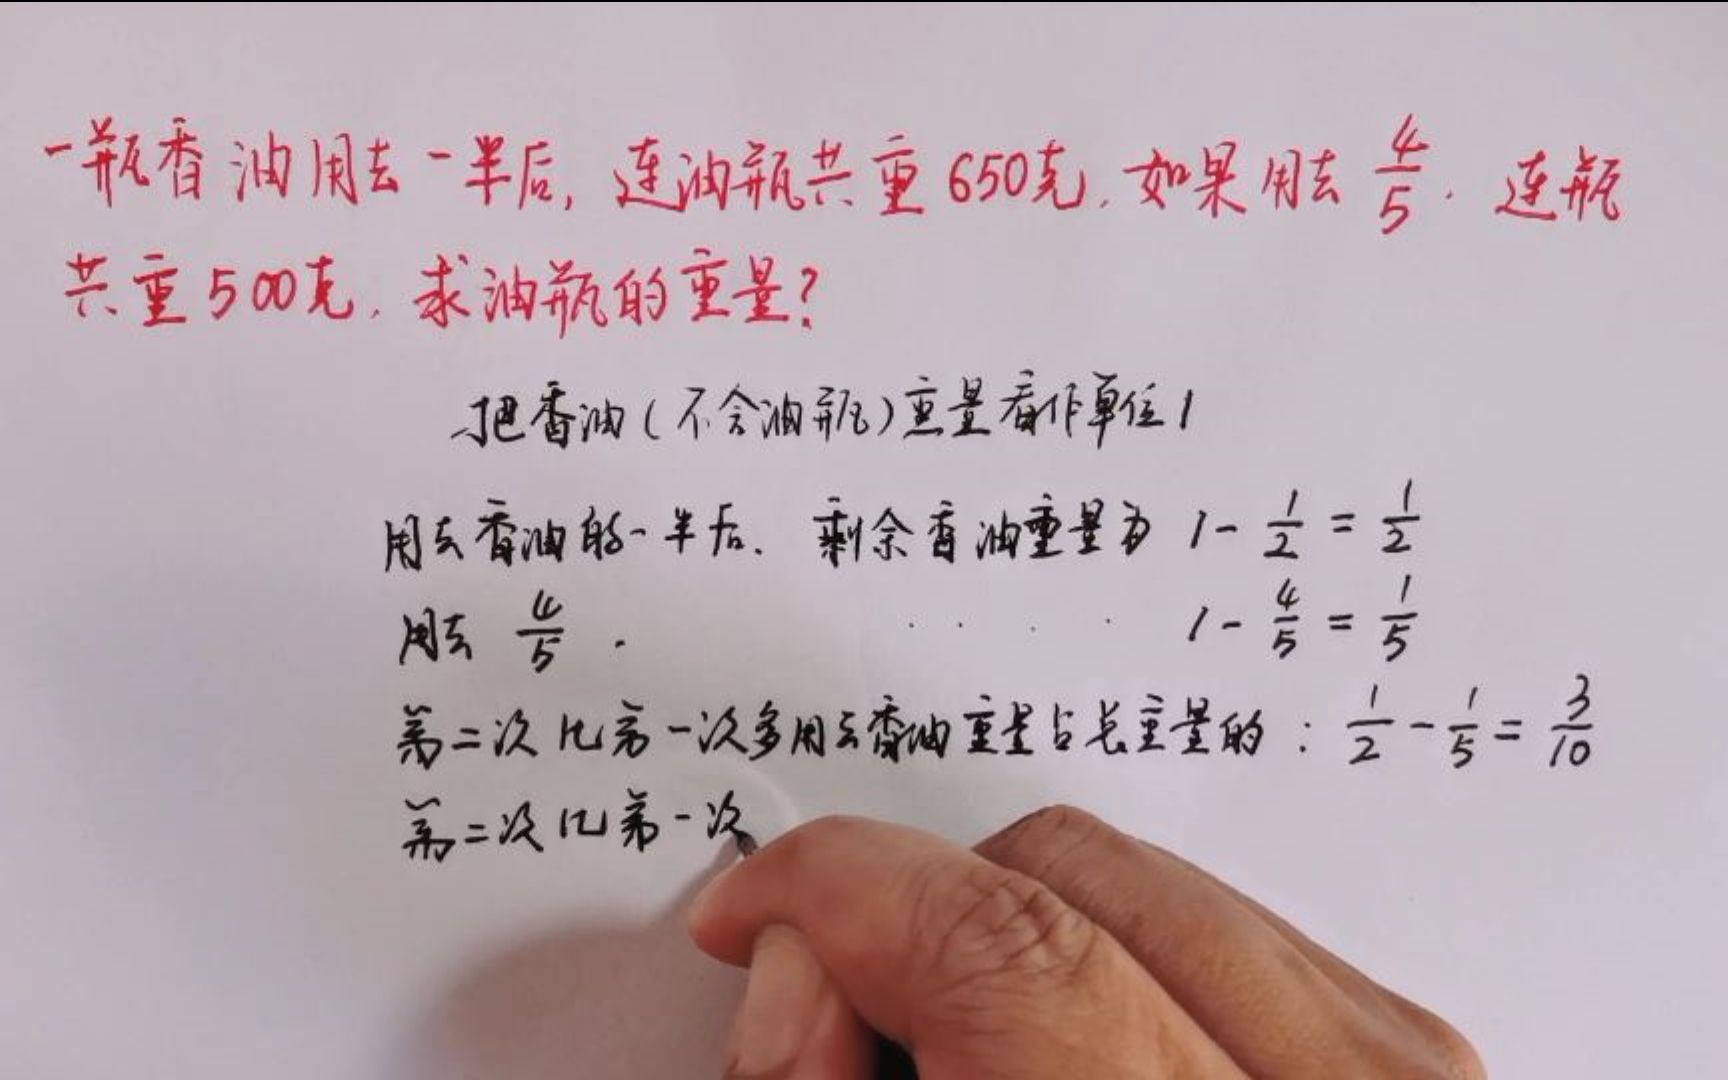 一瓶香油用去一半后,连油瓶共重650克.如果用去4/5.连瓶
共重500克.求油瓶的重量?
把香油(不含油瓶)重量看作单位1
用去香油的一半后.剩余香油重量为 1-1/2=1/2
用去 4/5 . . . . . 1-4/5=1/5
第二次比第一次多用去香油重量占总重量的:1/2-1/5=3/10
第二次比第一次